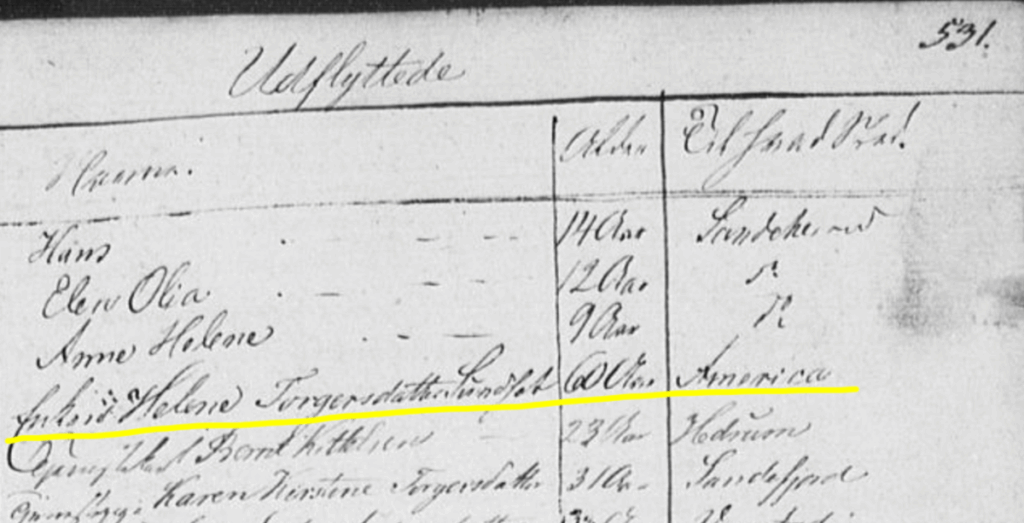 531.
Udflyttede
Navne. Alder Til hvad Sted.
Hans 14 Aar Sandeherred
Elen Olia 12 Aar
Anne Helene 9 Aar
Enke Helene Torgersdatter 60 Aar America
Bernt Kittelsen 23 Aar Hedrum
Karen Kirstine Torgersdatter 31 Aar Sandefjord